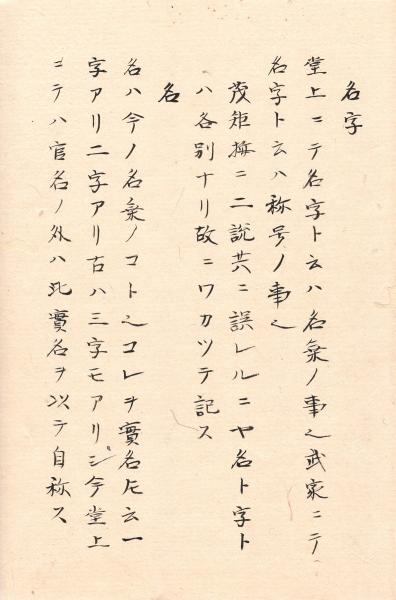 名字
堂上ニテ名字ト云ハ名乗ノ事也武家ニテ
名字ト云ハ称号ノ事也
茂矩按ニ二説共ニ誤レルニヤ名ト字ト
ハ各別ナリ故ニワカツテ記ス
名
名ハ今ノ名乗ノコト也コレヲ實名圧云一
字アリ二字アリ古ハ三字モアリシ今堂上
ニテハ官名ノ外ハ此實名ヲ以テ自称ス